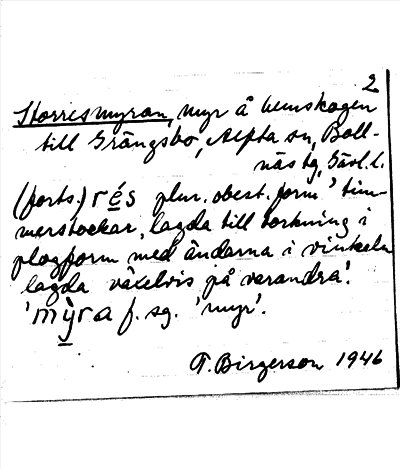 2
Storresmyran, myr å hemskogen
till Grängsbo, Alfta sn, Boll-
näs tg, Gävl. l.
(forts.) rés plur. obest. form 'tim-
merstockar, lagda till torkning i
plogform med ändarna i vinkeln
lagda växelvis på varandra'.
'mỳra f. sg. 'myr'.
T. Birgerson 1946